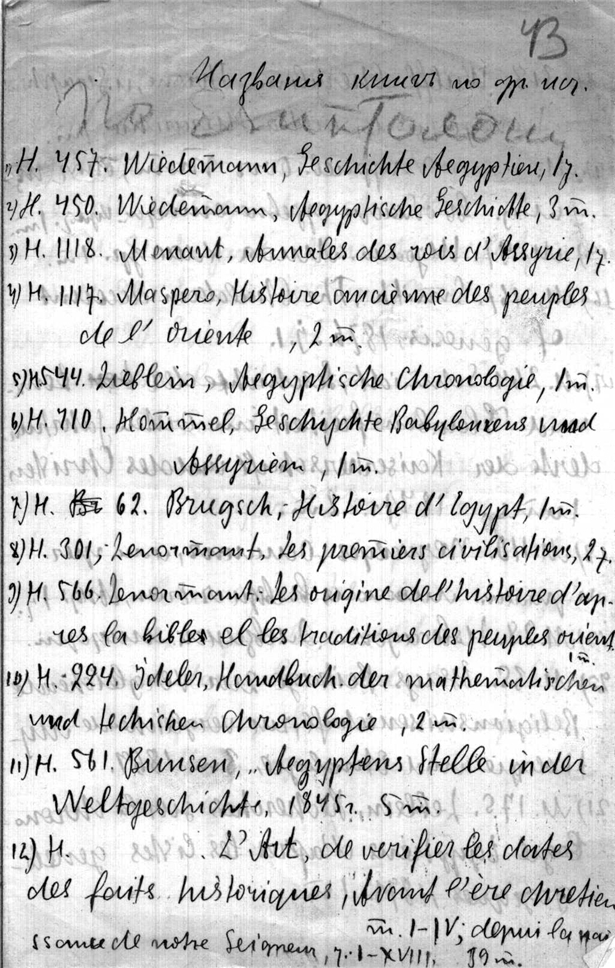 43
Названия книгъ по др. ист.
1) H. 457. Wiedemann, Geschichte Aegyptien, 1 т.
2) H. 450. Wiedemann, Aegyptische Geschichte, 3 т.
3) H. 1118. Menant, Annales des rois d'Assyrie, 1 т.
4) H. 1117. Maspero, Histoire ancienne des peuples
de l'oriente, 2 т.
5) H. 544. Lieblein, Aegyptische Chronologie, 1 т.
6) H. 710. Hommel, Geschychte Babyloniens und
Assyriern, 1 т.
7) H. 62. Brugsch, Histoire d'Egypt, 1 т.
8) H. 301, Lenormant, Les premiers civilisations, 2 т.
9) H. 566. Lenormant: Les origine de l'histoire d'ap-
res la bibles et les traditions des peuples orient.
1 т.
10) H. 224. Ideler, Handbuch der mathematischen
und techischen Chronologie, 2 т.
11) H. 561. Bunsen, Aegyptens Stelle in der
Weltgeschichte, 1845 г. 5 т.
12) H. L'Art, de verifier les dates
des faits historiques, Avant l'ère chretien
т. I-IV; depui la nai
ssance de notre Seigneur, т. I-XVIII, 39 т.